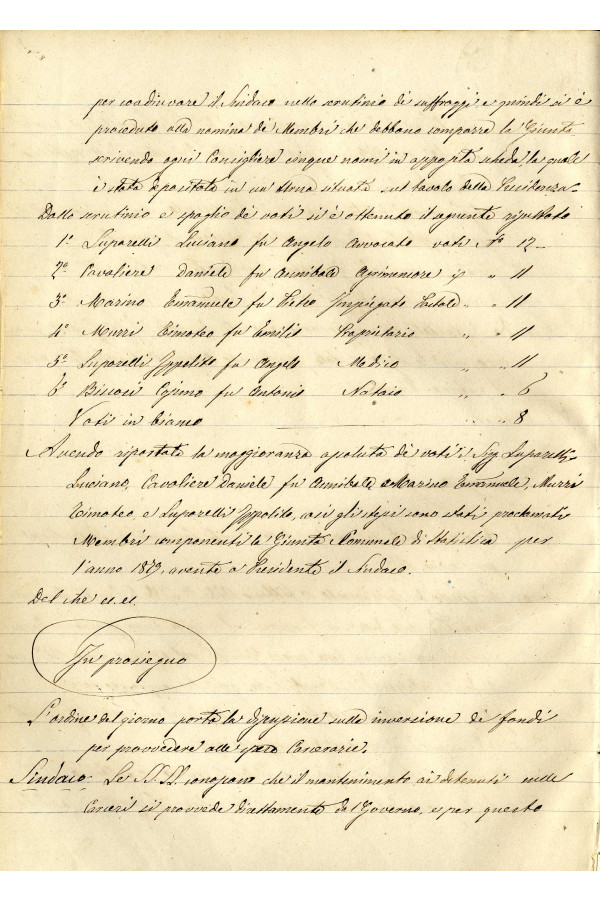 per coadiuvare il Sindaco nello scrutinio dei suffraggi, e quindi si è
proceduto alla nomina dei Membri che debbano comporre la Giunta
scrivendo ogni Consigliere cinque nomi in apposita scheda, la quale
è stata depositata in un Urna situata sul tavolo della Presidenza.
Dallo scrutinio e spoglio dei voti si è ottenuto il seguente risultato
1° Luparelli Luciano fu Angelo Avvocato voti N° 12
2° Cavaliere Daniele fu Annibale Agrimensore id " 11
3° Marino Emanuele fu Pietro Impiegato Postale " " 11
4° Murri Timoteo fu Emilio Proprietario " " 11
5° Luparelli Ippolito fu Angelo Medico " " 11
6° Biscosi Cosimo fu Antonio Notaio " " 6
Voti in bianco " " 8
Avendo riportata la maggioranza assoluta dei voti i Sig. Luparelli
Luciano, Cavaliere Daniele fu Annibale Marino Emanuele, Murri
Timoteo, e Luparelli Ippolito, così gli stessi sono stati proclamati
Membri componenti la Giunta Comunale di Statistica per
l'anno 1873, avente a Presidente il Sindaco.
Del che ec. ec.
In prosieguo
L'ordine del giorno porta la discussione sulla inversione dei fondi
per provvedere alle spese Carcerarie.
Sindaco: Le SS. LL. conoscono che il mantenimento ai detenuti nelle
Carceri si provvede direttamente dal Governo, e per questo